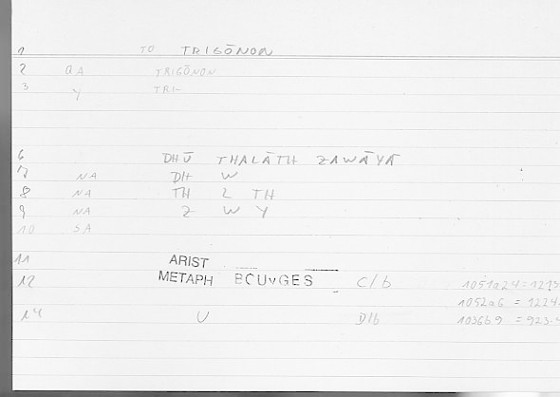 1 TO TRIGŌNON
2 aA TRIGŌNON
3 Y TRI-
6 DHŪ THALĀTH ZAWĀYĀ
7 NA DH W
8 NA TH L TH
9 NA Z W Y
10 SA
11 ARIST
12 METAPH BOUYGES C/b 1051a24=
1052a6 = 1224
14 U D/b 1036b9 = 923.